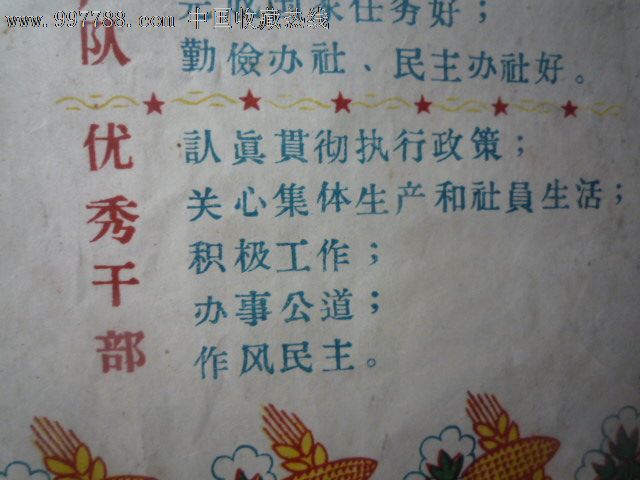 www.997788.com 中国收藏热线
队
家任务好；
勤儉办社、民主办社好。
优秀干部
認眞貫彻执行政策；
关心集体生产和社員生活；
积极工作；
办事公道；
作风民主。